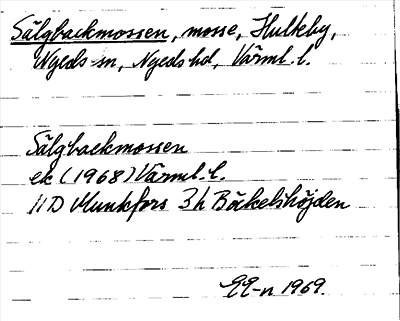 Sälgbackmossen, mosse, Hulteby,
Nyeds sn, Nyeds hd, Värml. l.
Sälgbackmossen
ek (1968) Värml. l.
11D Munkfors 3h Bäckelshöjden
1969.